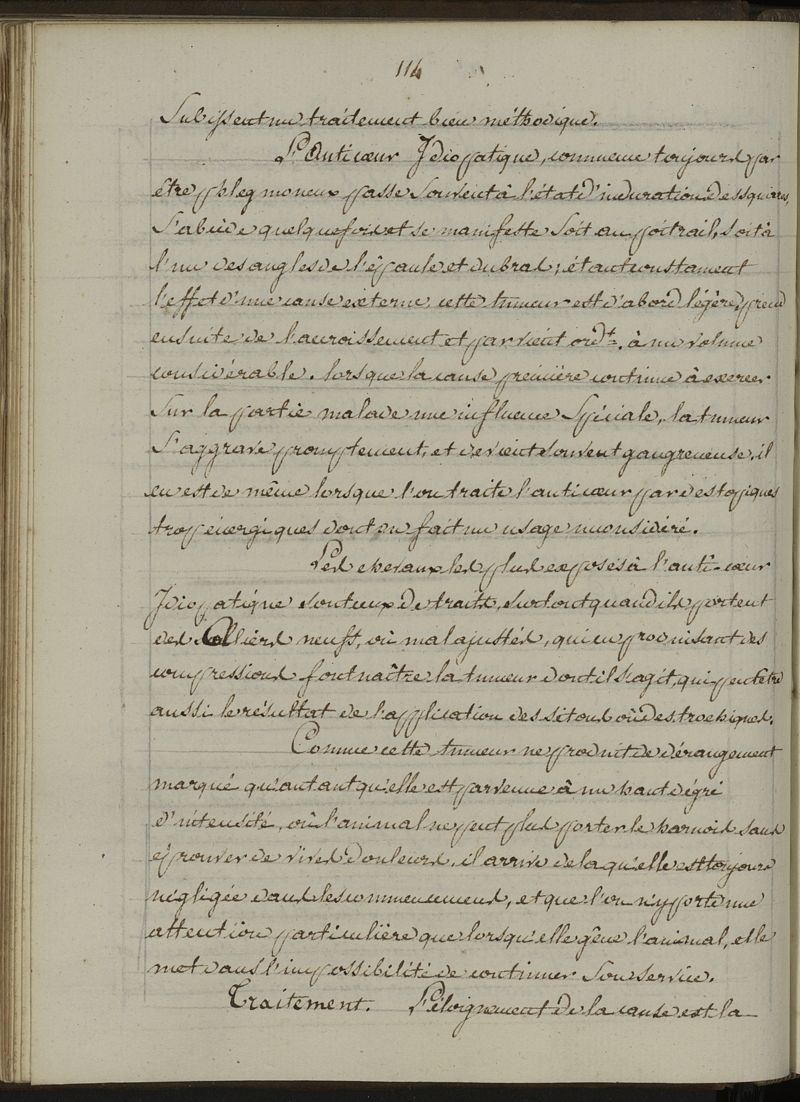 114
Subissent un traitement bien méthodique.
L'Anticœur Idiopatique, commence toujours par
être phlegmoneux passe souvent à l'état d'induration de squirres,
S'abcède quelquefois et se manifeste soit au poitrail, soit à
l'un des angles de l'épaule et du bras; étant constament
l'effet d'une cause externe, cette tumeur est d'abord légère, prend
ensuite de l'accroissement et parvient ordt. à un volume
considérable. lorsque la cause première continue à exercer
Sur la partie malade une influence Spéciale, la tumeur
S'aggrave promptement, et devient souvent gangreneuse, il
en est de même lorsque l'on traite l'anticœur par des topiques
trop énergiques dont on fait un usage inconsidéré.
Les chevaux les plus exposés à l'anti-cœur
Idiopatique sont ceux de traits, surtout quand ils portent
des Colliers neufs, où mal ajustés, qui en produisant des
compressions font naître la tumeur dont il s'agit, qui peut être
aussi le résultat de l'application des sétons où des trochiques.
Comme cette tumeur ne produit de dérangement
marqué qu'autant qu'elle est parvenue à un haut dégré
d'intensité, où l'animal ne peut plus porter le harnois sans
éprouver de vives douleurs, il arrive de la qu'elle est toujours
négligée dans les commencemens, et que l'on n'y porte une
attention particulière que lorsqu'elle gêne l'animal, elle
met dans l'impossibilité de continuer Son service.
Traitement. L'éloignement de la cause est la